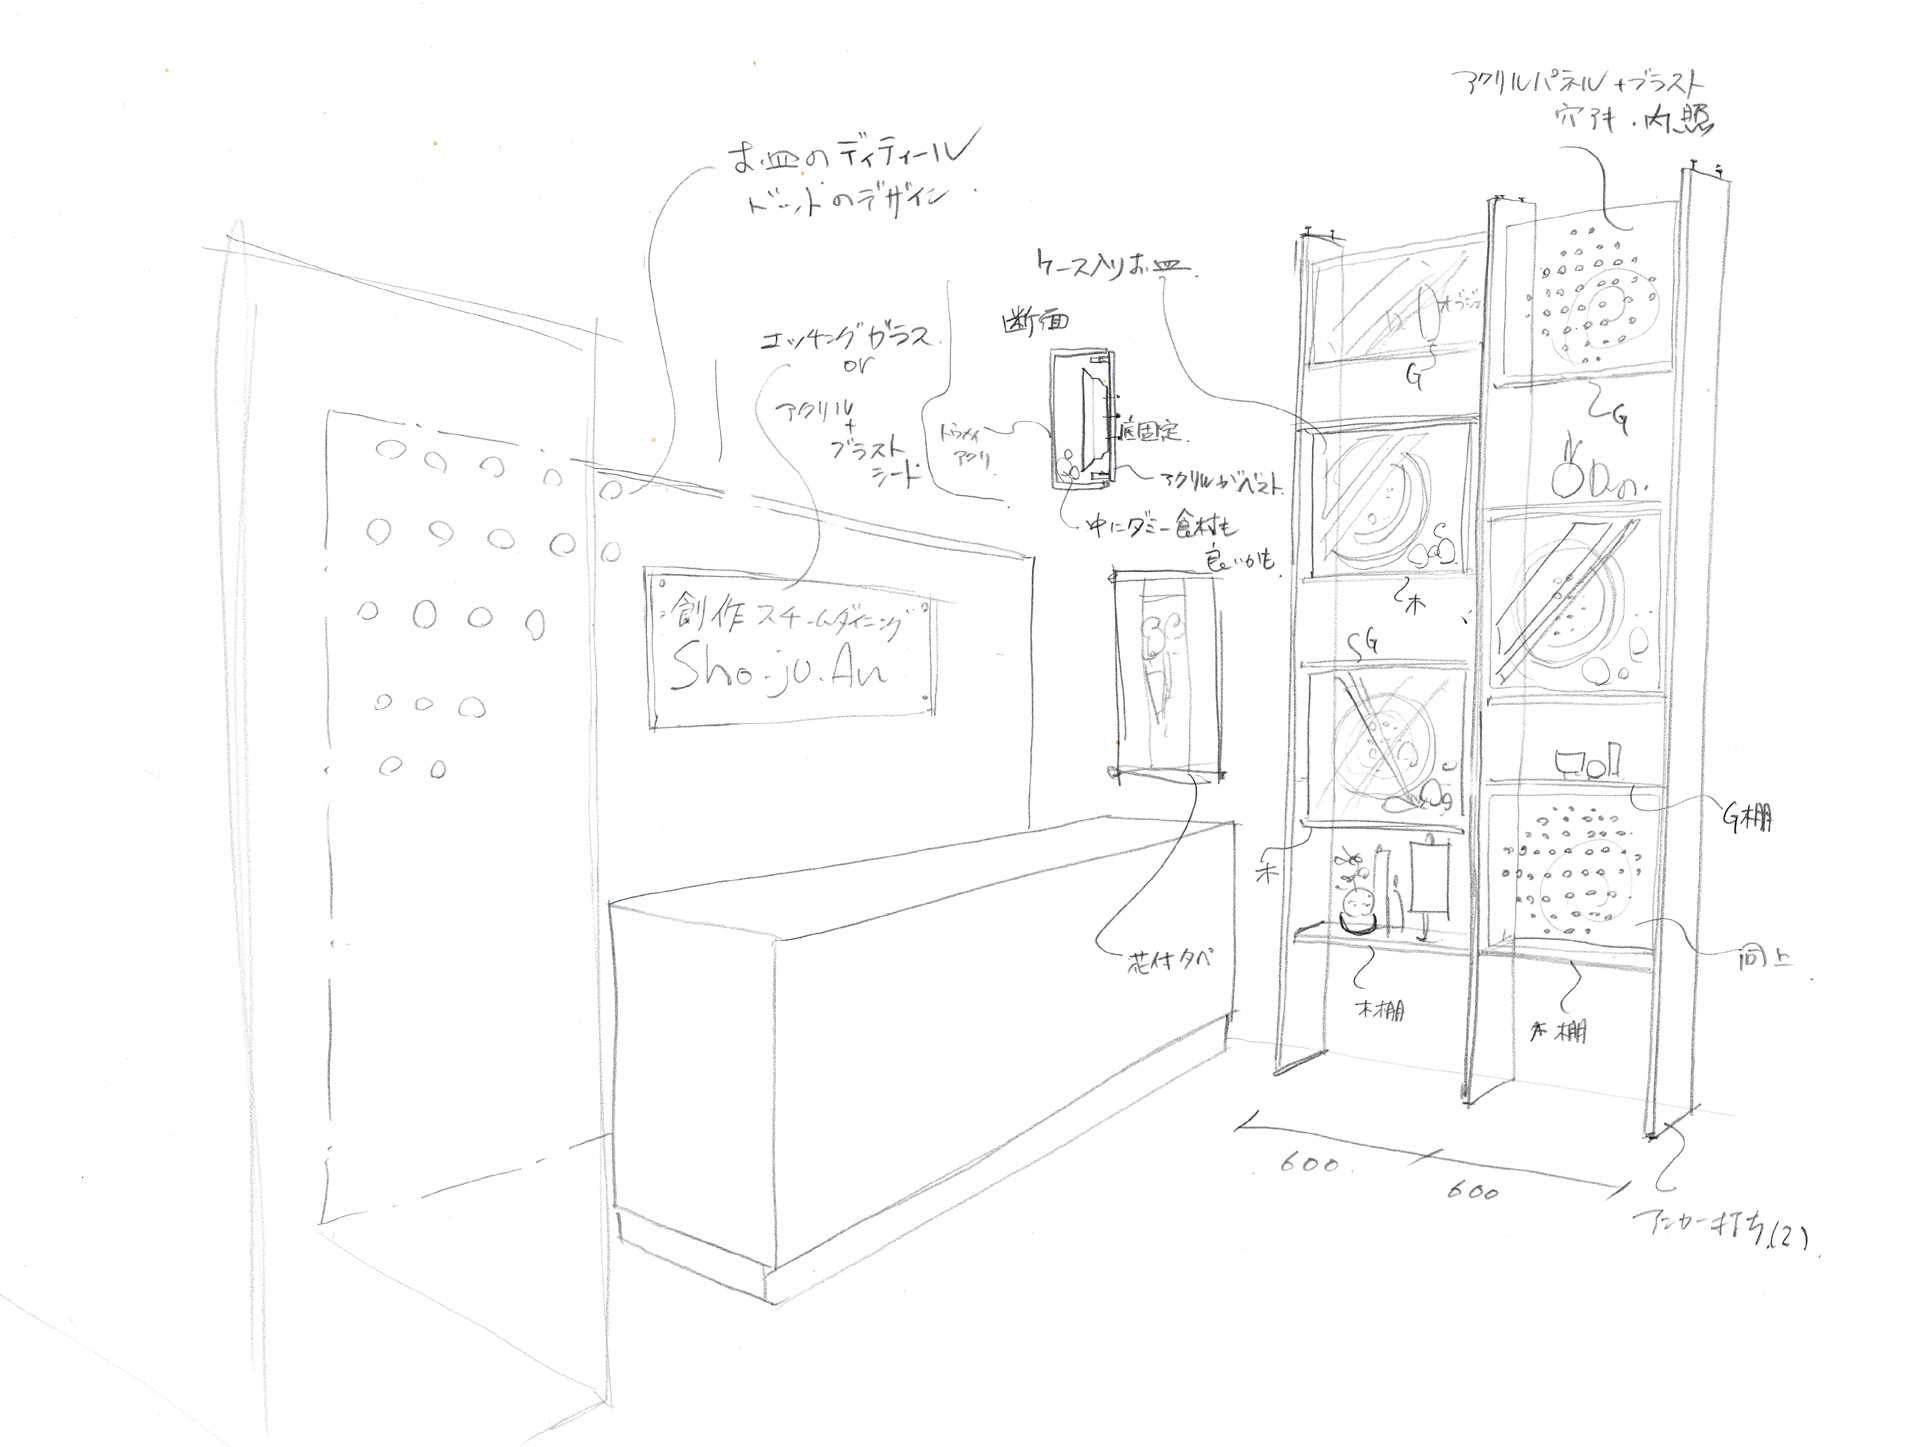 アクリルパネル+ブラスト
穴アキ・内照
お皿のディティール
ドットのデザイン
ケース入りお皿
断面
エッチングガラス
or
アクリル
+
ブラスト
シード
底固定
アクリルがベスト
中にダミー食材も
良いかも
オブジェ
G
G
木
G
創作スチームダイニング
Sho-ju.An
G棚
木
花付タペ
同上
木棚
木棚
600
600
アンカー打ち(2)